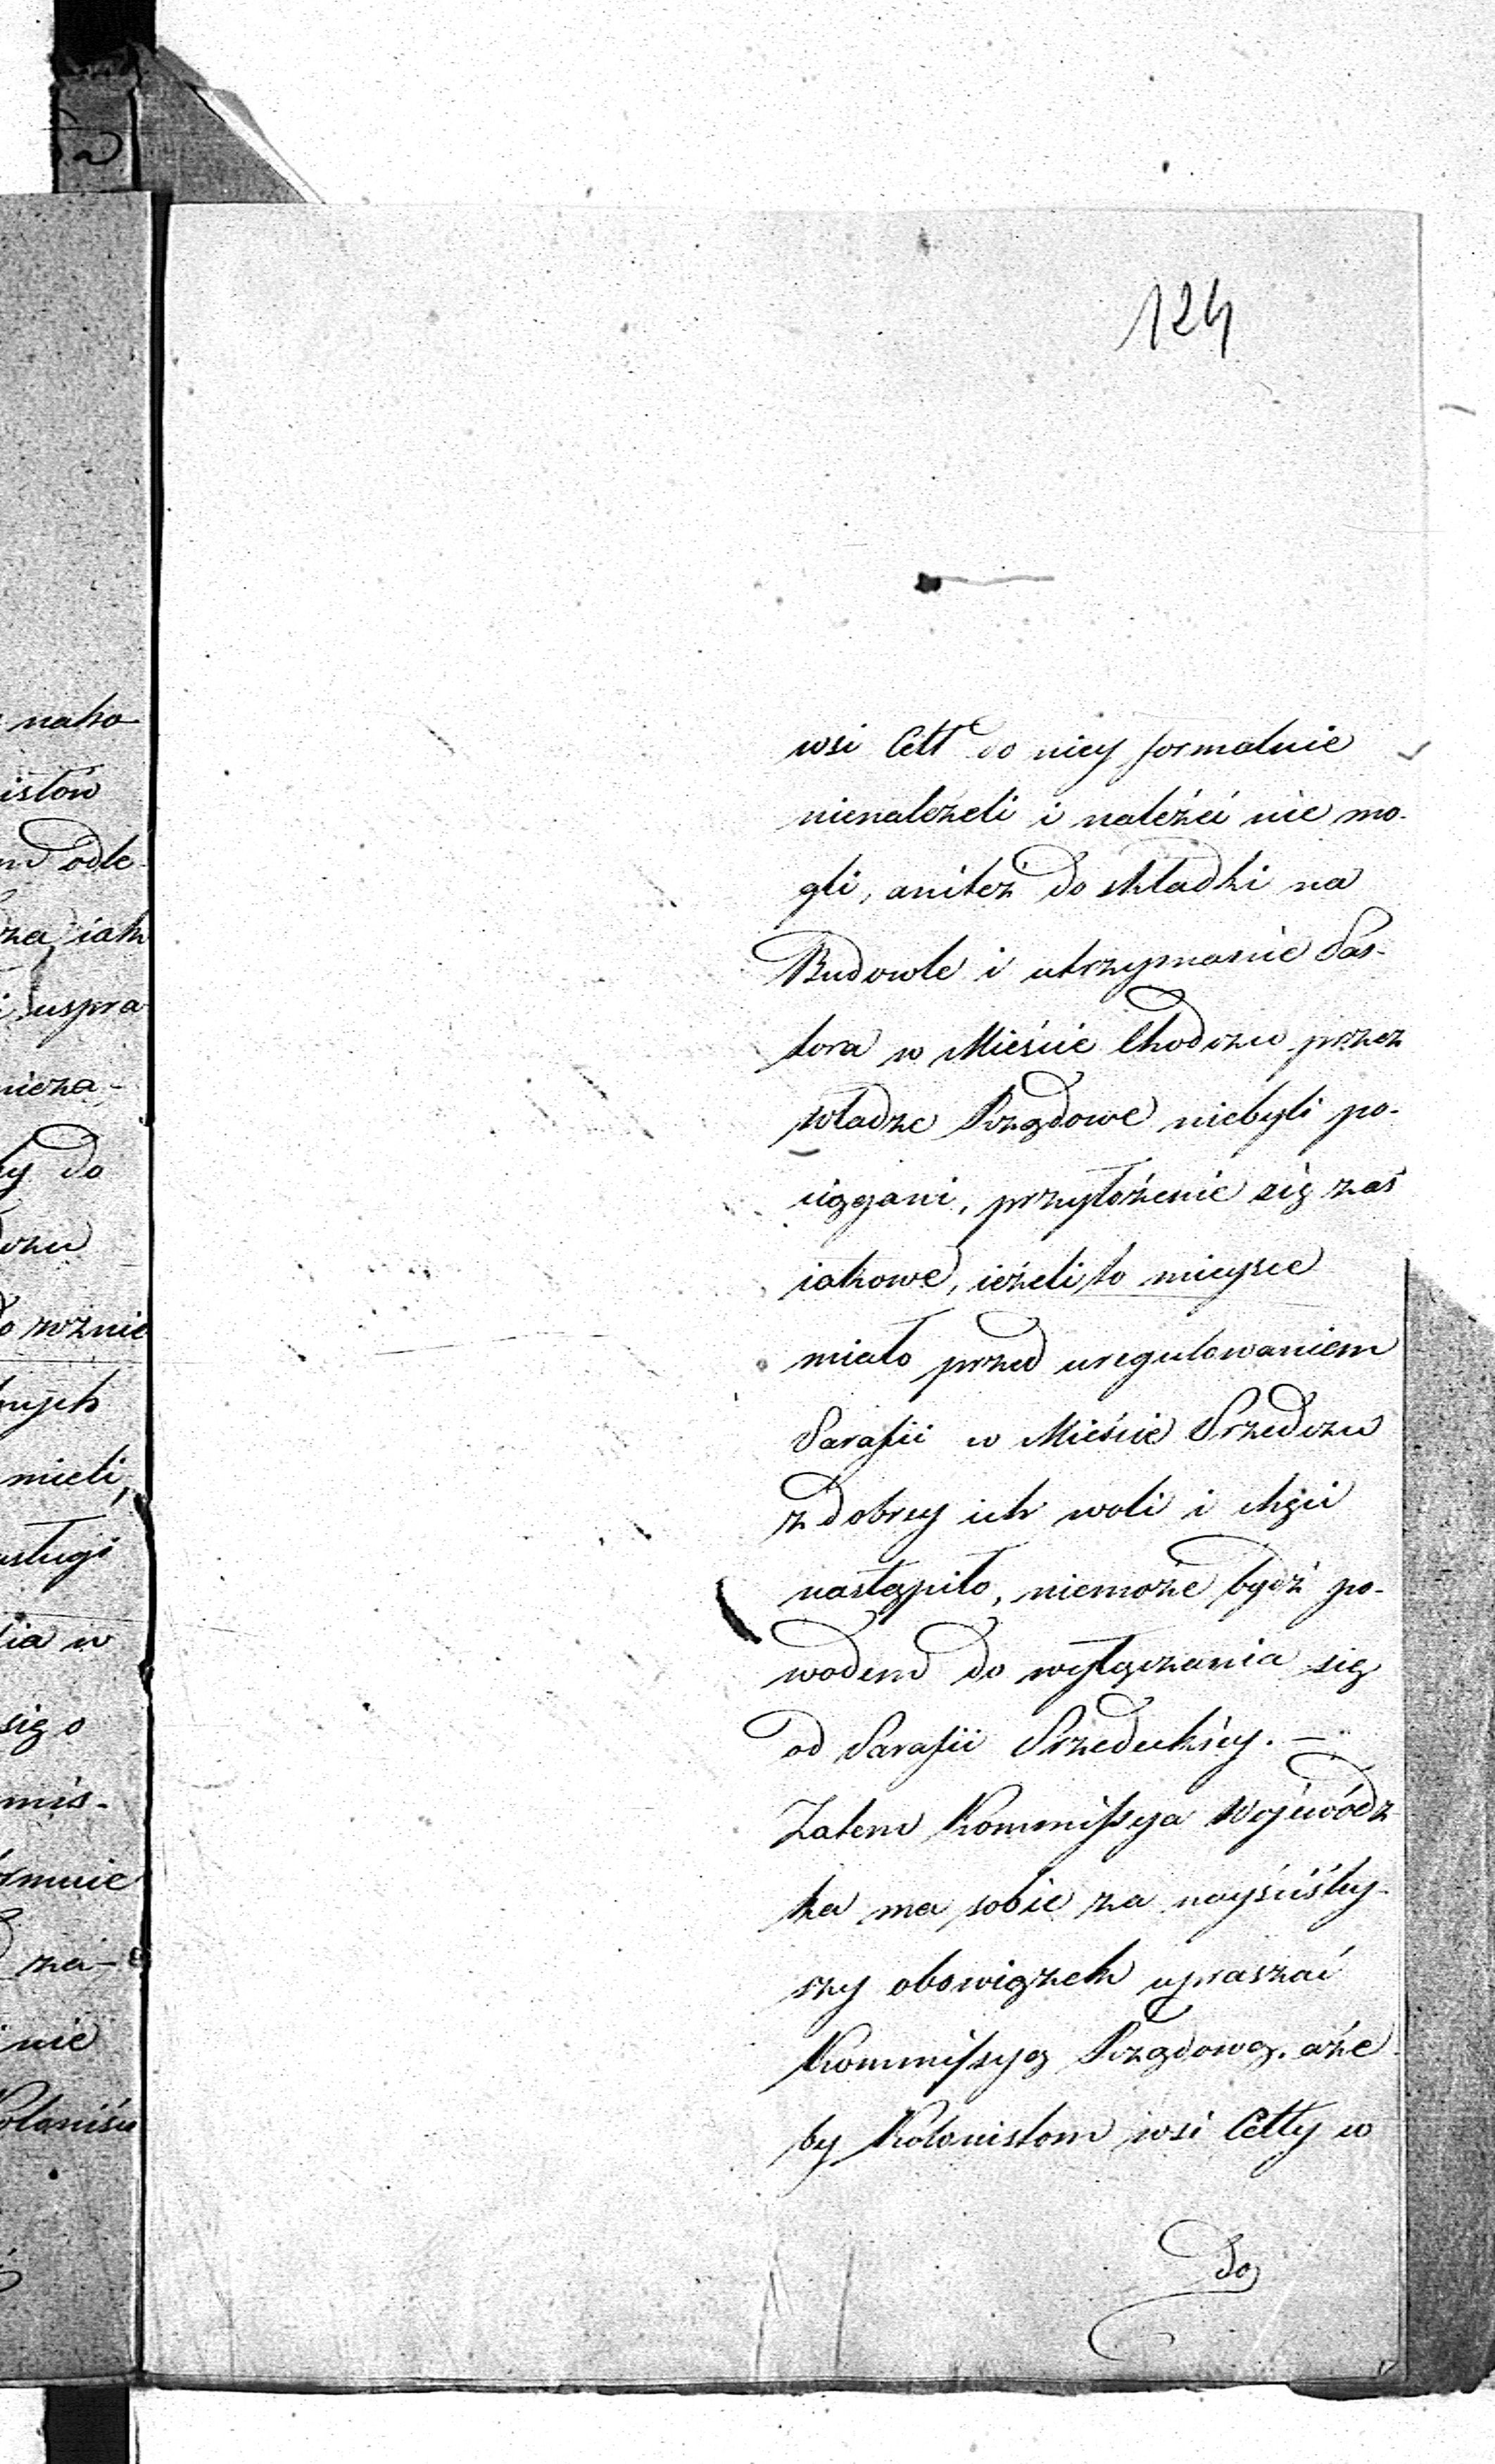 124
wsi Cett do niey formalnie
nienależeli i należeć nie mo-
gli, anitez do składki na
Budowle i utrzymanie Pas-
tora w Mieście Chodczu przez
władze Rządowe niebyli po-
ciągani, przyłożenie się zaś
iakowe, ieżeli to mieysce
miało przed uregulowaniem
Parafii w Mieście Przedczu
z dobrey ich woli i chęci
nastąpiło, niemoże bydź po-
wodem do wyłączania się
od Parafii Przedeckiey. —
Zatem Kommissya Wojewódz
ka ma sobie za nayściśley-
szy obowiązek upraszać
Kommissyą Rządową, aże
by Kolonistom wsi Cetty w
do
nako
istów
odle-
iak
uspra
nieza-
do
czu
rożnie
mieli,
ia w
się o
mis-
za-
nie